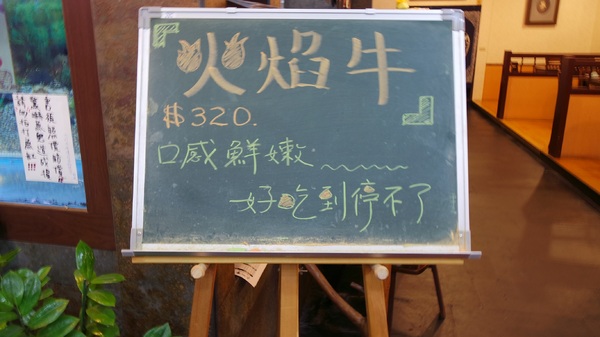 火焰牛
$320.
口感鮮嫩
好吃到停不了